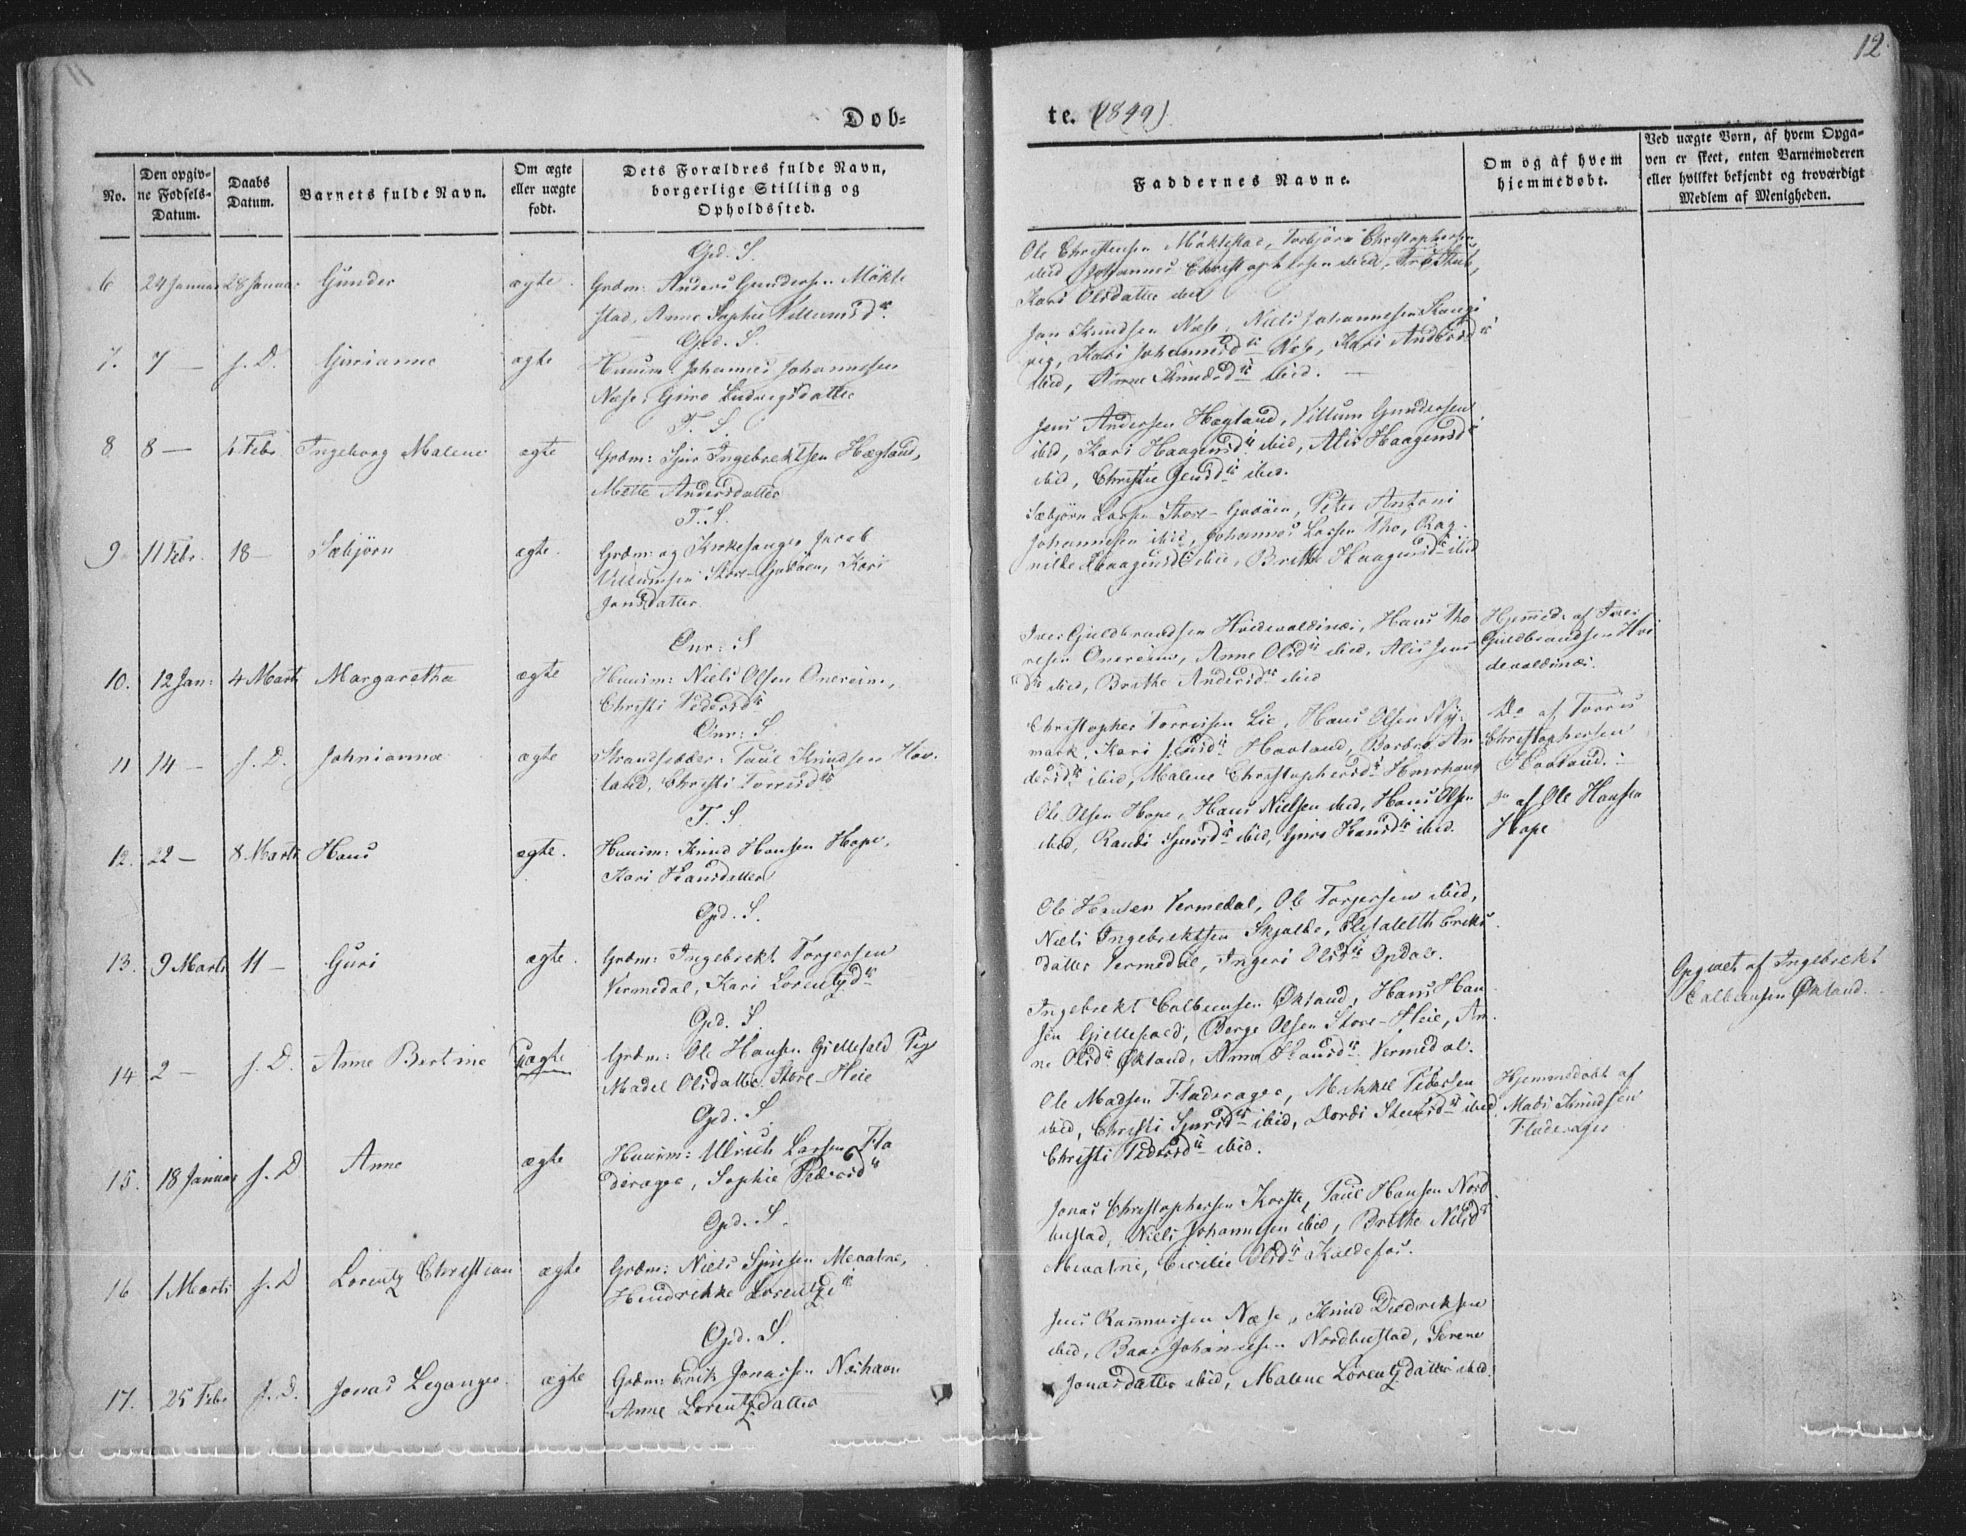 11
12
Døb=
te. (1849)
No.
Den opgiv=
ne Fødsels=
Datum.
Daabs
Datum.
Barnets fulde Navn.
Om ægte
eller uægte
født.
Dets Forældres fulde Navn,
borgerlige Stilling og
Opholdssted.
Faddernes Navne.
Om og af hvem
hjemmedøbt.
Ved uægte Børn, af hvem Opga=
ven er skeet, enten Barnemoderen
eller hvilket bekjendt og troværdigt
Medlem af Menigheden.
Opd. S.
6 24 Januar 28 Januar Gunder ægte. Grdm: Anders Gundersen Møkle
stad, Anne Sophie Villumsdr.
Ole Christensen Møklestad, Torbjørn Christophersen
ibid, Johannes Christophersen ibid,
Kari Olsdatter ibid
Opd. S.
7. 7 — s. D. Gurianne ægte Huusm: Johannes Johannesen
Næse, Guro Ludvigsdatter
Jon Knudsen Næse, Niels Johannesen
Kari Johannesdr Næse, Kari Andersdr
ibid, Anne Knudsdr ibid. —
T. S.
8. 8 — 4 Febr. Ingeborg Malene ægte Grdm: Sjur Ingebrektsen Hægland,
Mette Andersdatter
Jens Andersen Hægland, Villum Gundersen
ibid, Kari Haagensdr ibid, Alis Haagensdr
ibid, Christie Jensdr ibid.
T. S.
9 11 Febr. 18 — Sæbjørn ægte. Grdm: og Kirkesanger Jacob
Villumsen Store-Godøen, Kari
Jonsdatter
Sæbjørn Larsen Store-Godøen, Peter Antoni
Johannesen ibid, Johannes Larsen Thø, Rag-
nilde Haagensdr ibid, Brithe Haagensdr ibid
Onr: S
10. 12 Jan: 4 Marts Margaretha ægte Huusm: Niels Olsen Onereim,
Christi Pedersdr
Iver Guldbrandsen Hvidevoldsnæs, Hans Tho
resen Onereim, Anne Olsdr ibid, Alis Jens
dr ibid, Brithe Andersdr ibid
Hjemmed. af Iver
Guldbrandsen Hvi
devoldsnæs.
Onr: S.
11 14 — s. D. Johnianna ægte Strandsidder: Paul Knudsen Hov-
land, Christi Torrisdr
Christopher Torrisen Lie, Hans Olsen Ny-
mark, Kari Hovland, Barbro An
dersdr ibid, Malene Christophersdr
Do af Torris
Christophersen
Hovland.
T. S
12. 22 — 8 Marts Hans ægte. Huusm: Knud Hansen Hope,
Kari Hansdatter
Ole Olsen Hope, Hans Nielsen ibid, Hans Olsen
ibid, Randi Sjursdr ibid, Guro Hansdr ibid.
Do af Ole Hansen
Hope
Opd. S.
13. 9 Marts 11 — Guri ægte. Grdm: Ingebrekt Torgersen
Vermedal, Kari Lorentzdr
Ole Hansen Vermedal, Ole Torgersen ibid,
Niels Ingebrektsen Skjælbe, Elisabeth Eriks
datter Vermedal, Ingeri Olsdr Opdal.
Opd. S.
14 2 — s. D. Anne Bertine Uægte Grdm: Ole Hansen Gjellefald Pige
Madel Olsdatter Store-Heie
Ingebrekt Colbeensen Økland, Hans Han
sen Gjellefald, Berge Olsen Store-Heie, An
ne Olsdr Økland, Anna Hansdr Vermedal.
Opgivet af Ingebrekt
Colbeensen Økland.
Opd. S.
15. 18 Januar s. D Anne ægte Huusm: Ulrich Larsen Fla
deragee, Sophie Pedersdr
Ole Madsen Fladeragee, Mikkel Pedersen
ibid, Christi Sjursdr ibid, Dordi Steensdr ibid
Christi Pedersdr ibid.
Hjemmedøbt af
Mads Knudsen
Fladeragee
Opd. S.
16 1 Marts s. D Lorentz Christian ægte Grdm: Niels Sjursen Mevatne,
Hendrikke Lorentzdr
Jonas Christophersen Korste, Paul Hansen Nord
hustad, Niels Johannesen ibid, Brithe Nilsdr
Mevatne, Cicilie Olsdr Kaldefos.
Opd. S.
17. 25 Febr s. D. Jonas Leganger ægte Grdm: Erik Jonassen Nøshavn
Anne Lorentzdatter
Jens Rasmussen Næse, Knud Diedriksen
ibid, Baar Johannesen Nordhustad, Serene
Jonasdatter ibid, Malene Lorentzdatter ibid.